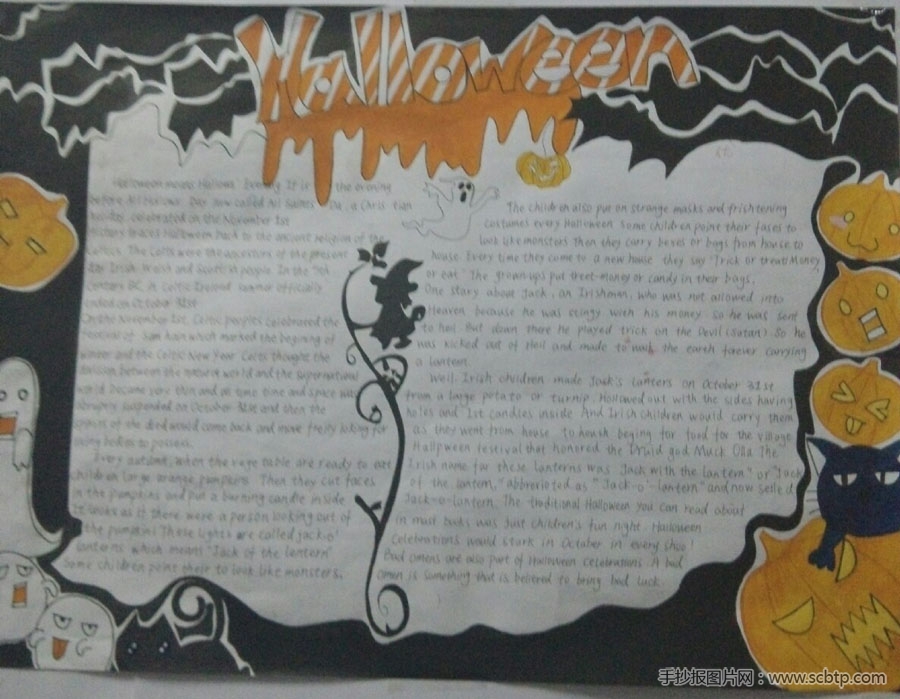 Halloween
Halloween means Hallows' Evening It is the evening
before All Hallows Day now called All Saints' Da, a Chris tian
holiday celebrated on the November 1st
History traces Halloween back to the ancient religion of the
Celtics. The Celts were the ancestors of the present
day Irish Welsh and Scottish people. In the 5th
century BC in Celtic Ireland summer officially
ended on October 31st
On the November 1st, Celtic peoples celebrated the
festival of Sam hain which marked the begining of
winter and the Celtic New Year Celts thought the
division between the natural world and the supernatural
world became very thin and as time time and space was
abruptly suspended on October 31st and then the
spirits of the died would come back and move freely looking for
living bodies to possess.
Every autumn, when the vege table are ready to eat
children large orange pumpkins Then they cut faces
in the pumpkins and put a burning candle inside
It looks as if there were a person looking out of
the pumpkin These lights are called jack-o'
lanterns which meant "Jack of the lantern"
Some children paint their to look like monsters.
The children also put on strange masks and frishtening
costumes every Halloween Some children paint their faces to
look like monsters Then they carry boxes or bags from house to
house. Every time they come to a new house they say 'Trick or treat! Money
or eat' The grown-ups put treet-money or candy in their bags.
One story about Jack, an Irishman, who was not allowed into
Heaven because he was stingy with his money. So he was sent
to hell But down there he played trick on the Devil (Satan) So he
was kicked out of Hell and made to walk the earth forever carrying
a lantern
Well Irish children made Jack's lanters on October 31st
from a large potato or turnip. Hollowed out with the sides having
holes and lit candles inside And Irish children would carry them
as they went from house to housh beging for food for the village
Halloween festival that honored the Druid god Muck Olla The
Irish name for these lanterns was Jack with the lantern" or "Jack
of the lantern," abbreviated as "Jack-o'-lantern" and now
Jack-o-lantern. The traditional Halloween you can read about
in must books was just children's fun night. Halloween
celebrations would stark in October in every shoo!
Bad omens are also part of Halloween celebrations. A bad
omen is something that is believed to bring bad luck.
手抄报图片网：www.scbtp.com